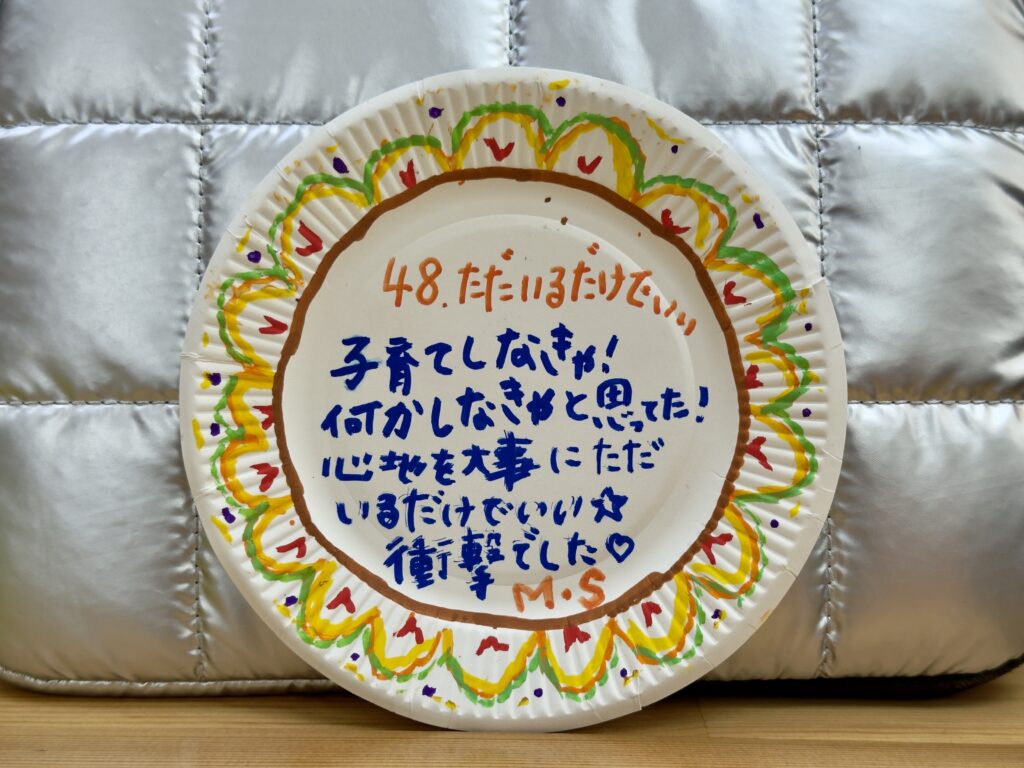 48.ただいるだけでいい
子育てしなきゃ!
何かしなきゃと思ってた!
心地を大事にただ
いるだけでいい☆
衝撃でした♡
M・S